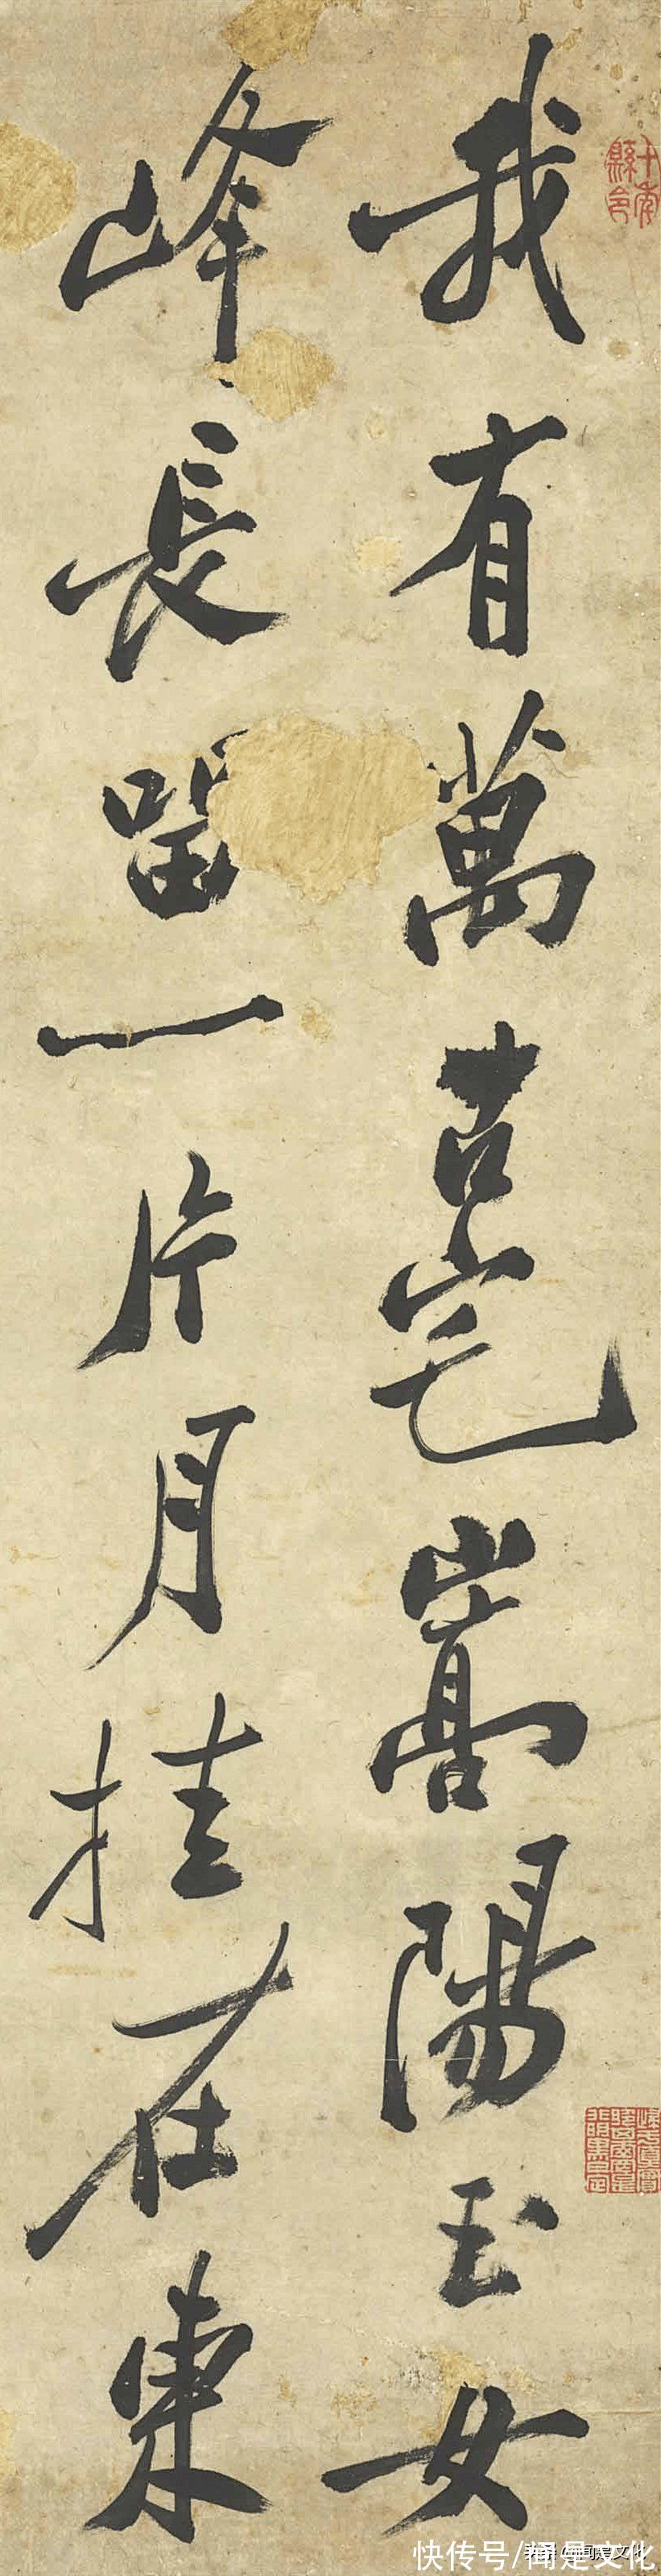 我有萬古宅嵩陽玉女
峰長留一片月挂在東
快传号/闻是文化